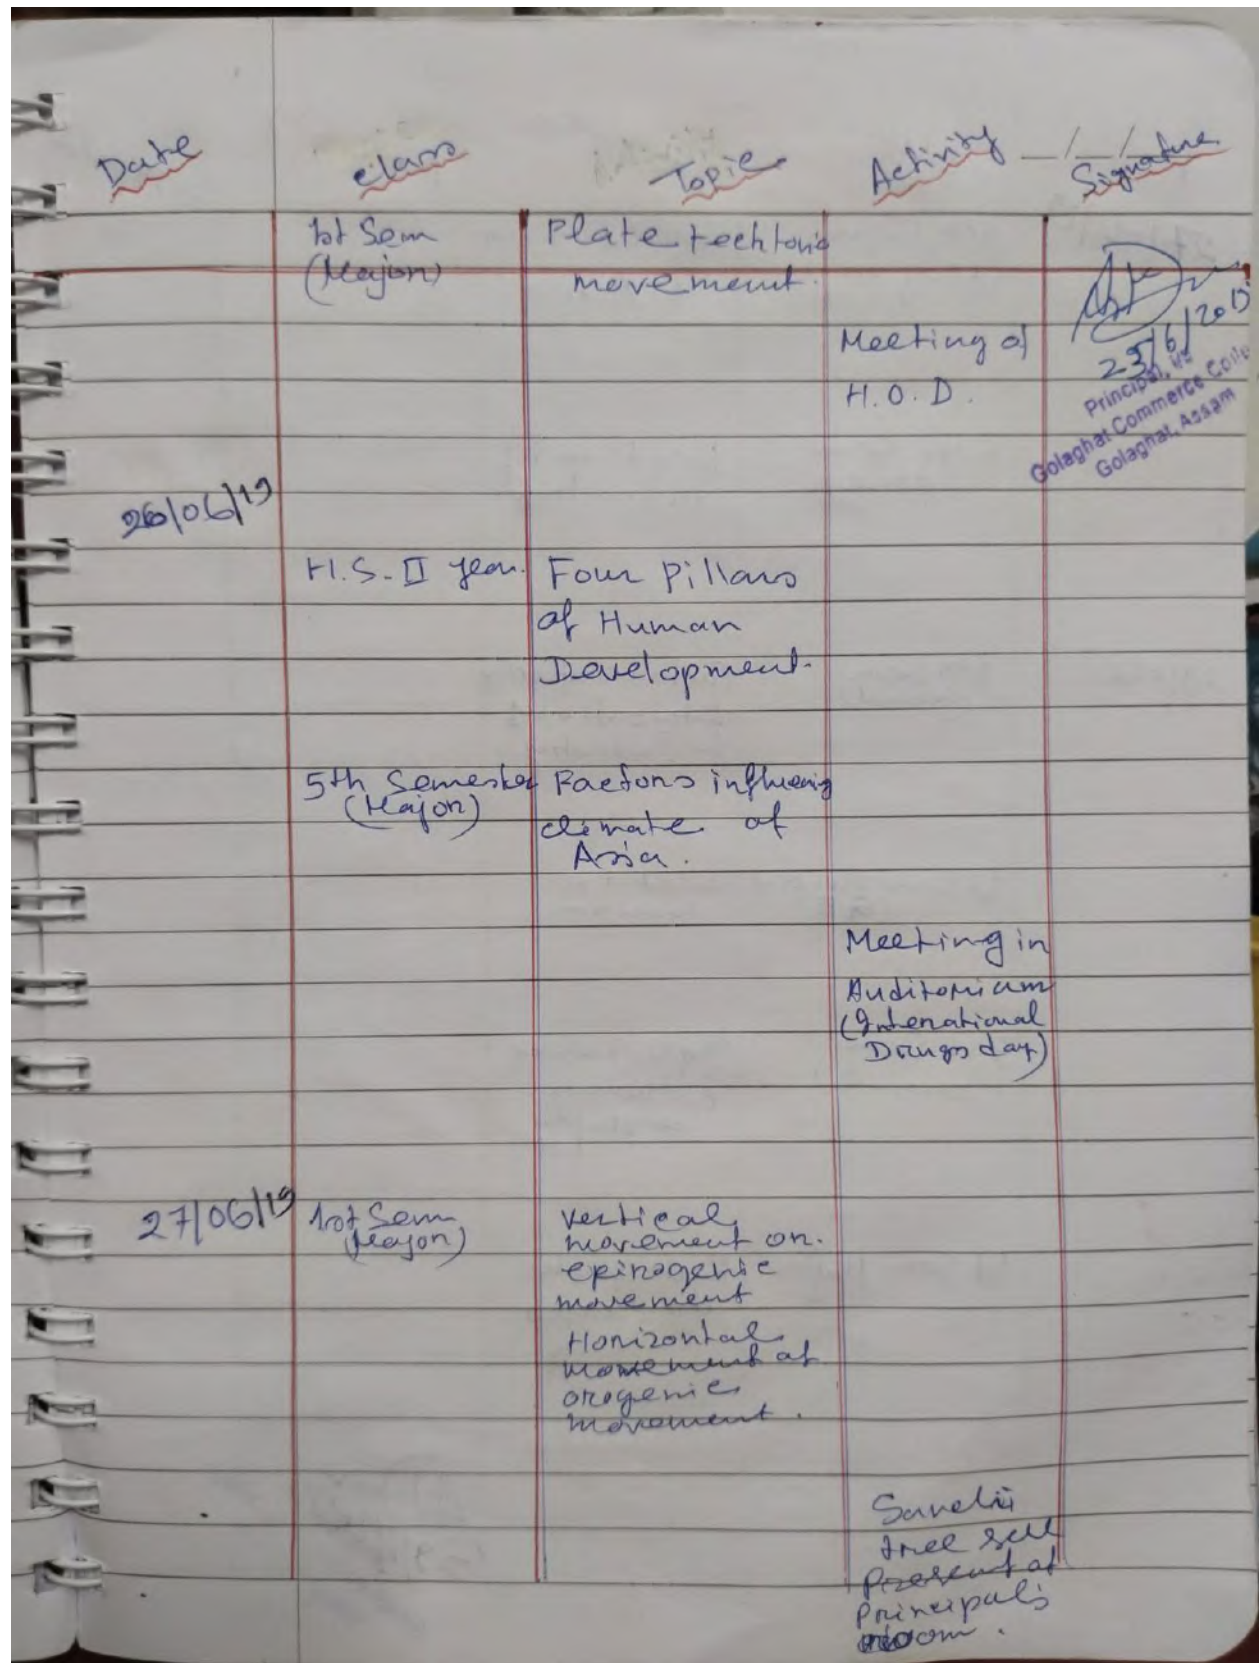 Date Class Topic Activity __/__/__ Signature
1st Sem Plate techtonic
(Major) movement.
Meeting of 25/6/2019
H.O.D. Principal, i/c
Golaghat Commerce Colle
Golaghat, Assam
26/06/19
H.S. II year. Four Pillars
of Human
Development.
5th Semester Factors influencing
(Major) climate of
Asia.
Meeting in
Auditorium
(International
Drugs day)
27/06/19 1st Sem vertical
(Major) movement or
epirogenic
movement
Horizontal
movement of
orogenic
movement.
tree sell
Present at
Principal's
room.